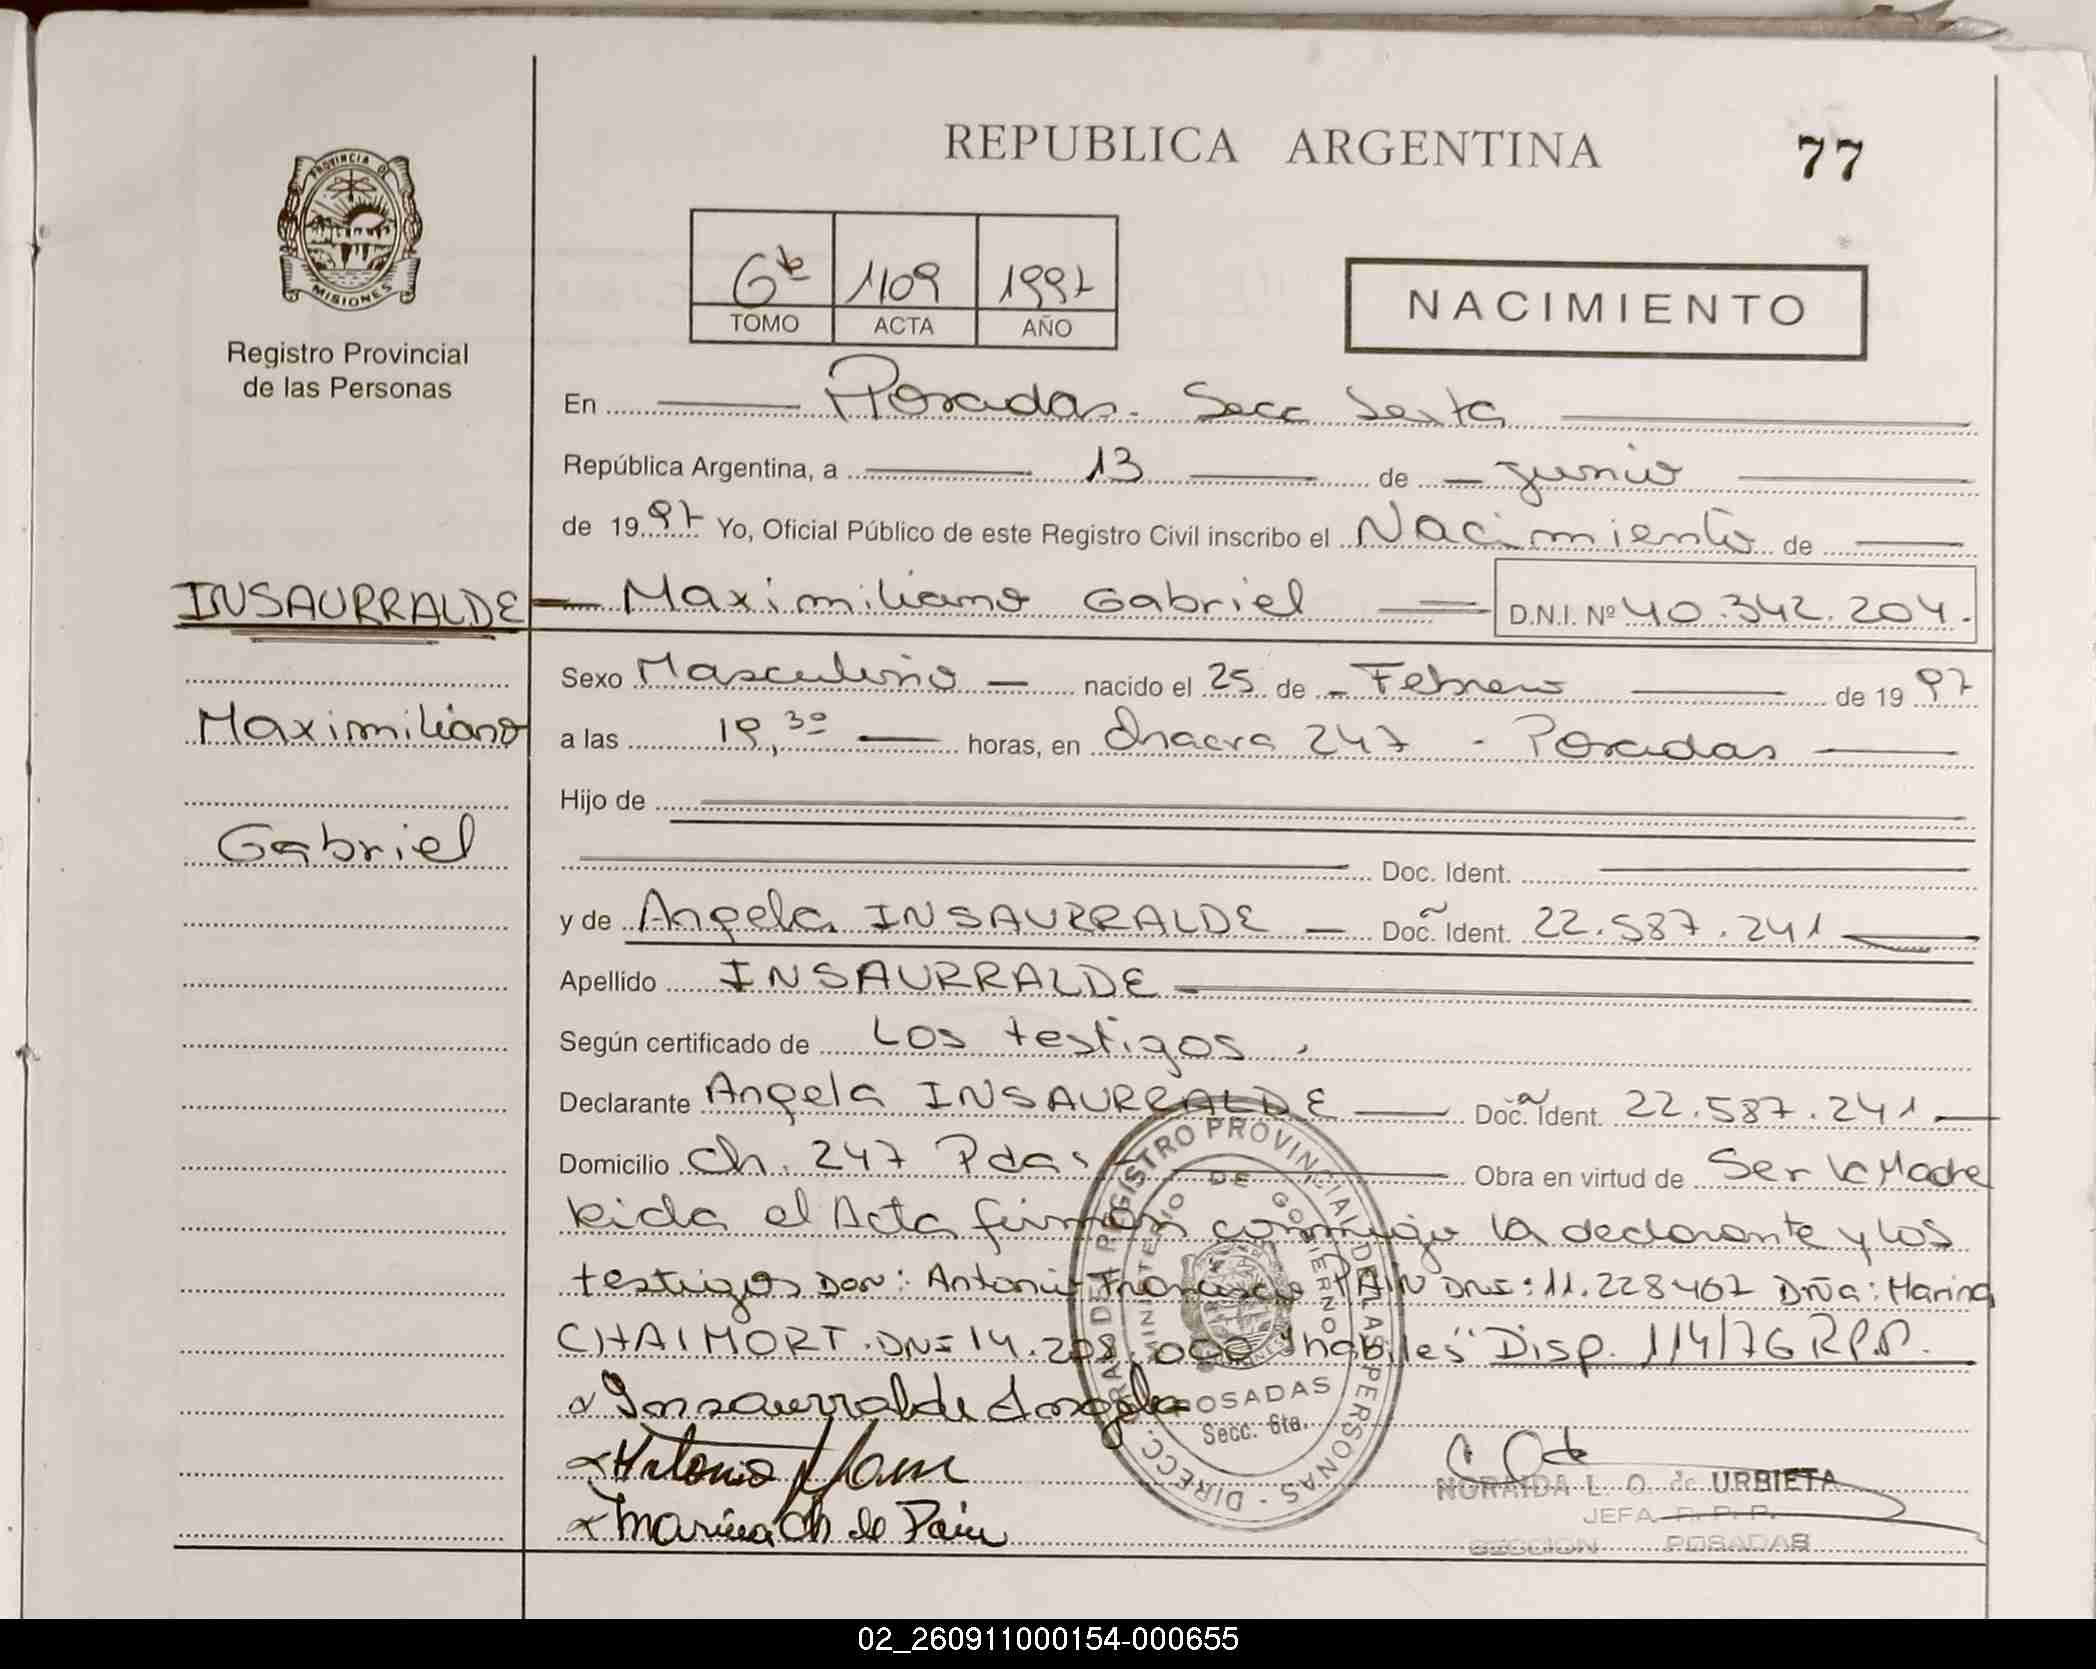 REPUBLICA ARGENTINA
77
PROVINCIA DE
MISIONES
Registro Provincial
de las Personas
6ta 1109 1997
TOMO ACTA AÑO
NACIMIENTO
En Posadas. Secc Sexta
República Argentina, a 13 de junio
de 1997 Yo, Oficial Público de este Registro Civil inscribo el Nacimiento de
INSAURRALDE Maximiliano Gabriel D.N.I. Nº 40.342.204.
Sexo Masculino nacido el 25 de Febrero de 1997
Maximiliano
a las 19,30 horas, en Chacra 247 - Posadas
Hijo de
Gabriel
Doc. Ident.
y de Angela INSAURRALDE Doc. Ident. 22.587.241
Apellido INSAURRALDE
Según certificado de Los testigos.
Declarante Angela INSAURRALDE Doc. Ident. 22.587.241
Domicilio Ch. 247 Pdas Obra en virtud de Ser la Madre
Leida el Acta firman conmigo la declarante y los
testigos Don: Antonio Francisco PAIN DNI: 11.228467 Dña: Marina
CHAIMORT. DNI 14.208.000 "habiles" Disp. 114/76 R.P.P.
Insaurralde Angela
Antonio F Pain
Marina Ch de Pain
DIRECC. GRAL. DE REGISTRO PROVINCIAL DE LAS PERSONAS
MINISTERIO DE GOBIERNO
POSADAS
Secc. 6ta.
NORAIDA L. O. de URBIETA
JEFA R. P. P.
SECCION POSADAS
02_260911000154-000655